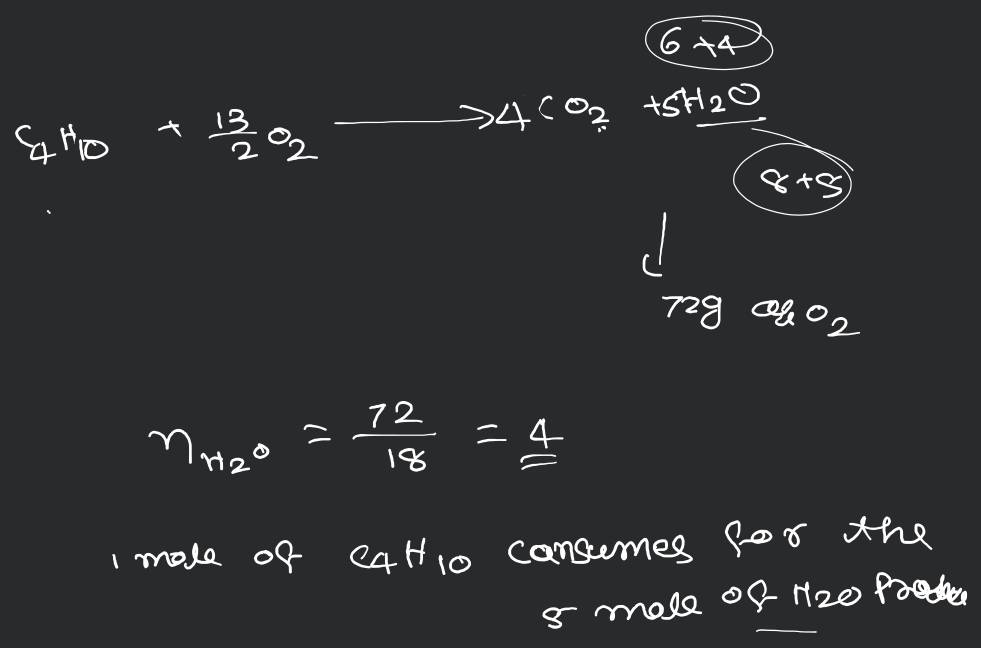 6+4
C4H10 + 13/2 O2 → 4CO2 +5H2O
8+5
72g of O2
nH2O = 72/18 = 4
1 mole of C4H10 consumes for the
5 mole of H2O